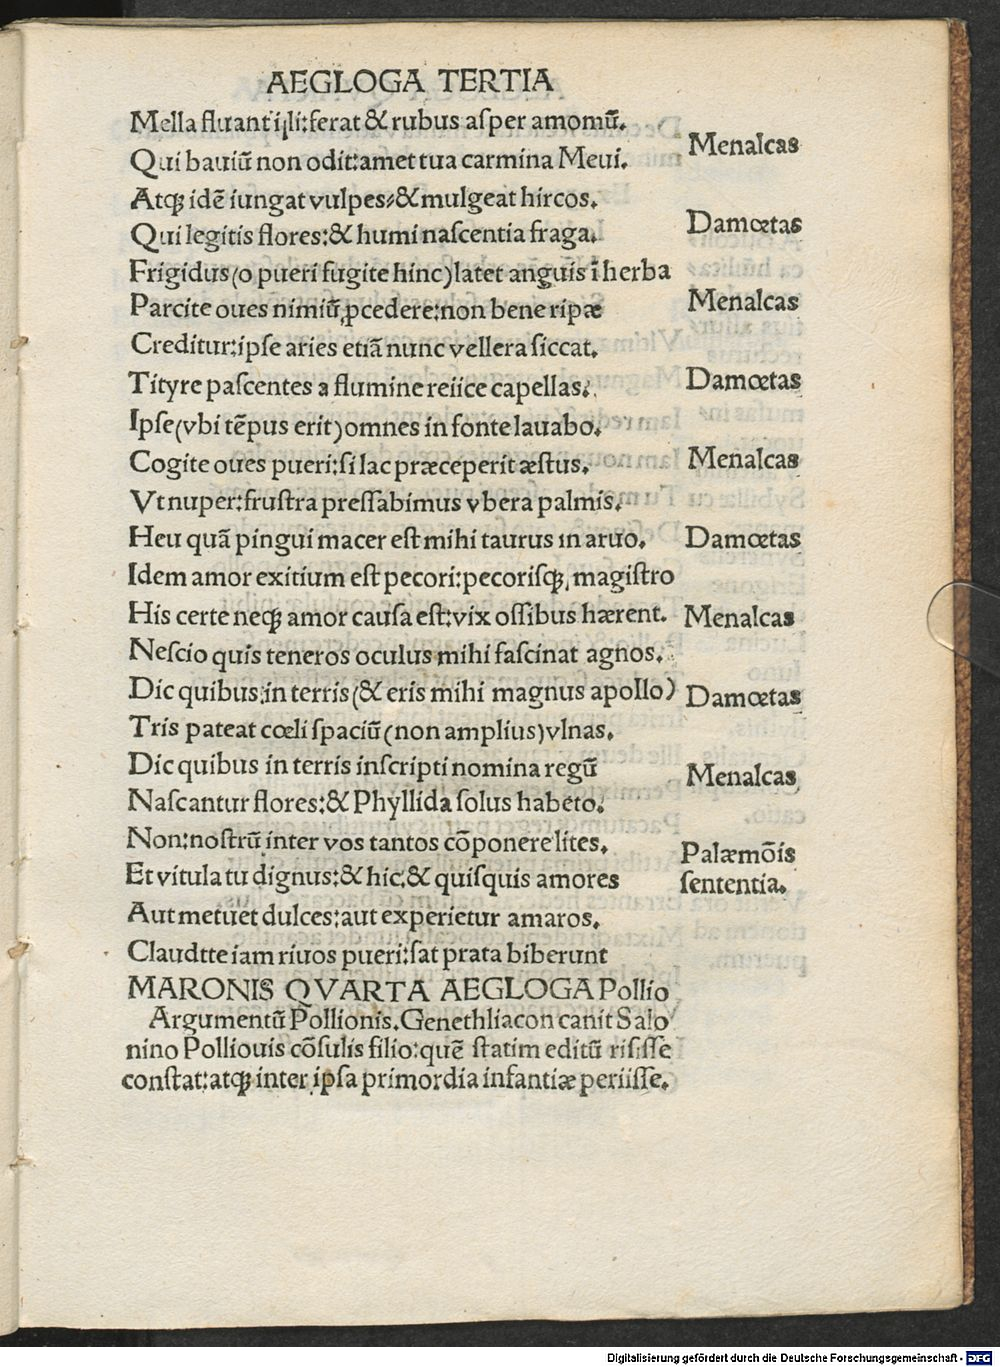 AEGLOGA TERTIA
Mella fluant illi:ferat & rubus asper amomū.
Menalcas
Qui bauiū non odit:amet tua carmina Meui.
Atqꝫ idē iungat vulpes:& mulgeat hircos.
Damœtas
Qui legitis flores:& humi nascentia fraga.
Frigidus(o pueri fugite hinc)latet anguis ī herba
Menalcas
Parcite oues nimiū ꝓcedere:non bene ripæ
Creditur:ipse aries etiā nunc vellera siccat.
Damœtas
Tityre pascentes a flumine reiice capellas.
Ipse(vbi tēpus erit)omnes in fonte lauabo.
Menalcas
Cogite oues pueri:si lac præceperit æstus.
Vt nuper:frustra pressabimus vbera palmis.
Damœtas
Heu quā pingui macer est mihi taurus in aruo.
Idem amor exitium est pecori:pecorisqꝫ magistro
Menalcas
His certe neqꝫ amor causa est:vix ossibus hærent.
Nescio quis teneros oculus mihi fascinat agnos.
Damœtas
Dic quibus:in terris(& eris mihi magnus apollo)
Tris pateat cœli spaciū(non amplius)vlnas.
Menalcas
Dic quibus in terris inscripti nomina regū
Nascantur flores:& Phyllida solus habeto.
Palæmōis
sententia.
Non:nostrū inter vos tantos cōponere lites.
Et vitula tu dignus:& hic.& quisquis amores
Aut metuet dulces:aut experietur amaros.
Claudtte iam riuos pueri:sat prata biberunt
MARONIS QVARTA AEGLOGA Pollio
Argumentū Pollionis.Genethliacon canit Salo
nino Polliouis cōsulis filio:quē statim editū risisse
constat:atqꝫ inter ipsa primordia infantiæ periisse.
Digitalisierung gefördert durch die Deutsche Forschungsgemeinschaft - DFG